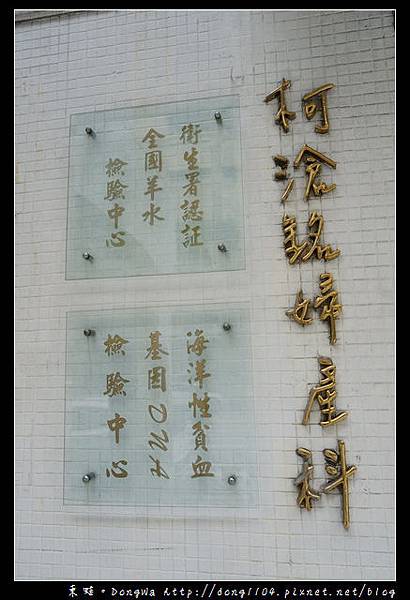 柯滄銘婦產科
衛生署認証
全國羊水
檢驗中心
海洋性貧血
基因DNA
檢驗中心
東蛙。DongWa http://dong1104.pixnet.net/blog